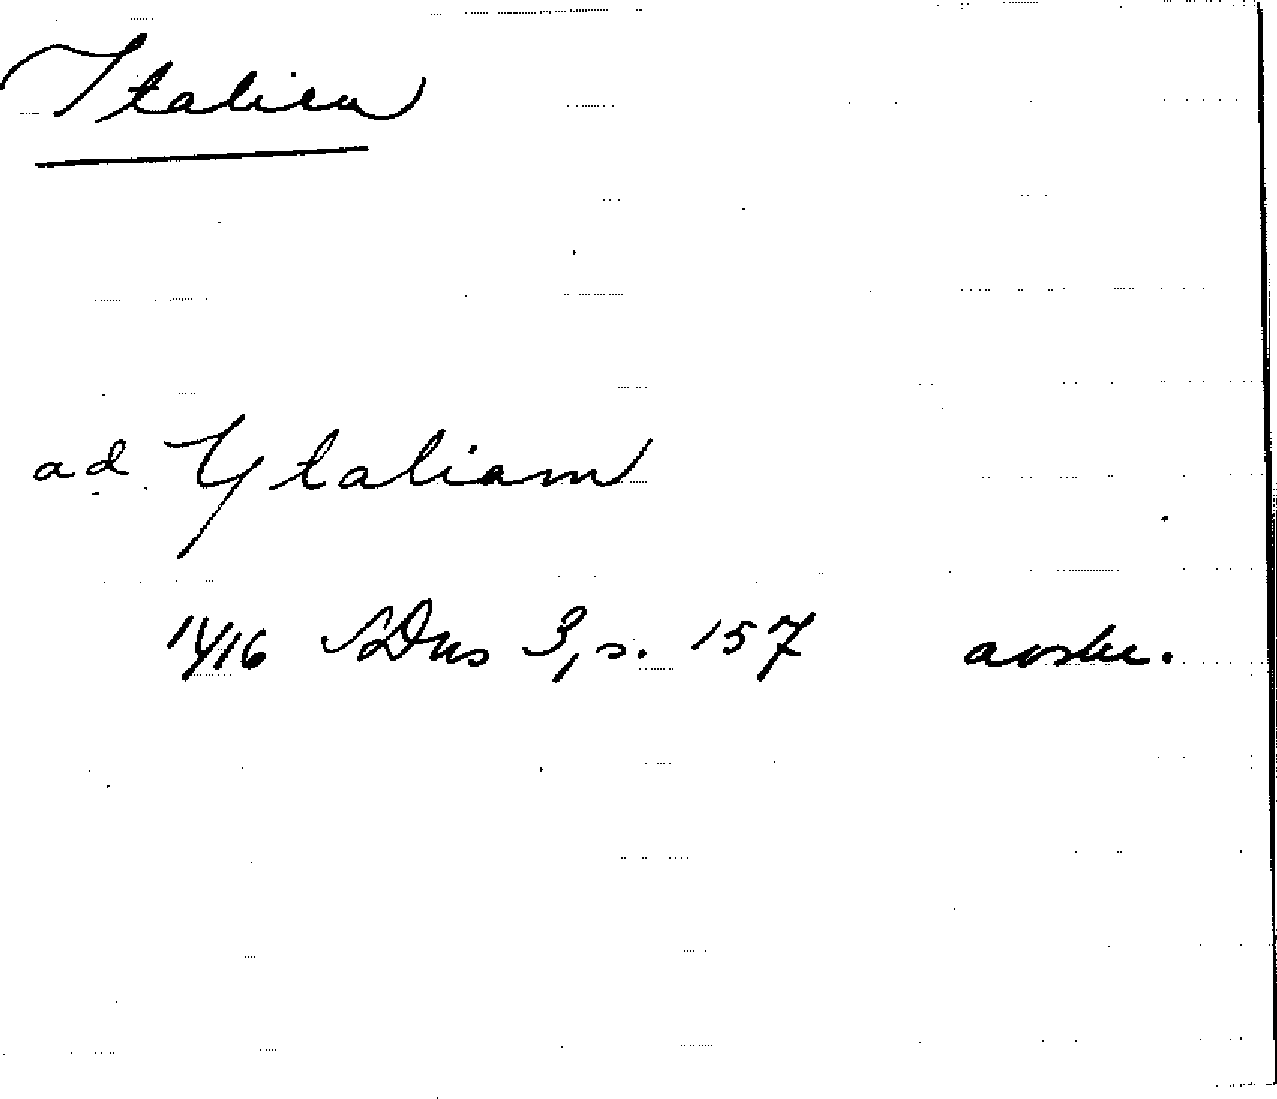 Italien
ad Ytaliam
1416 SDns 3, s. 157 avskr.